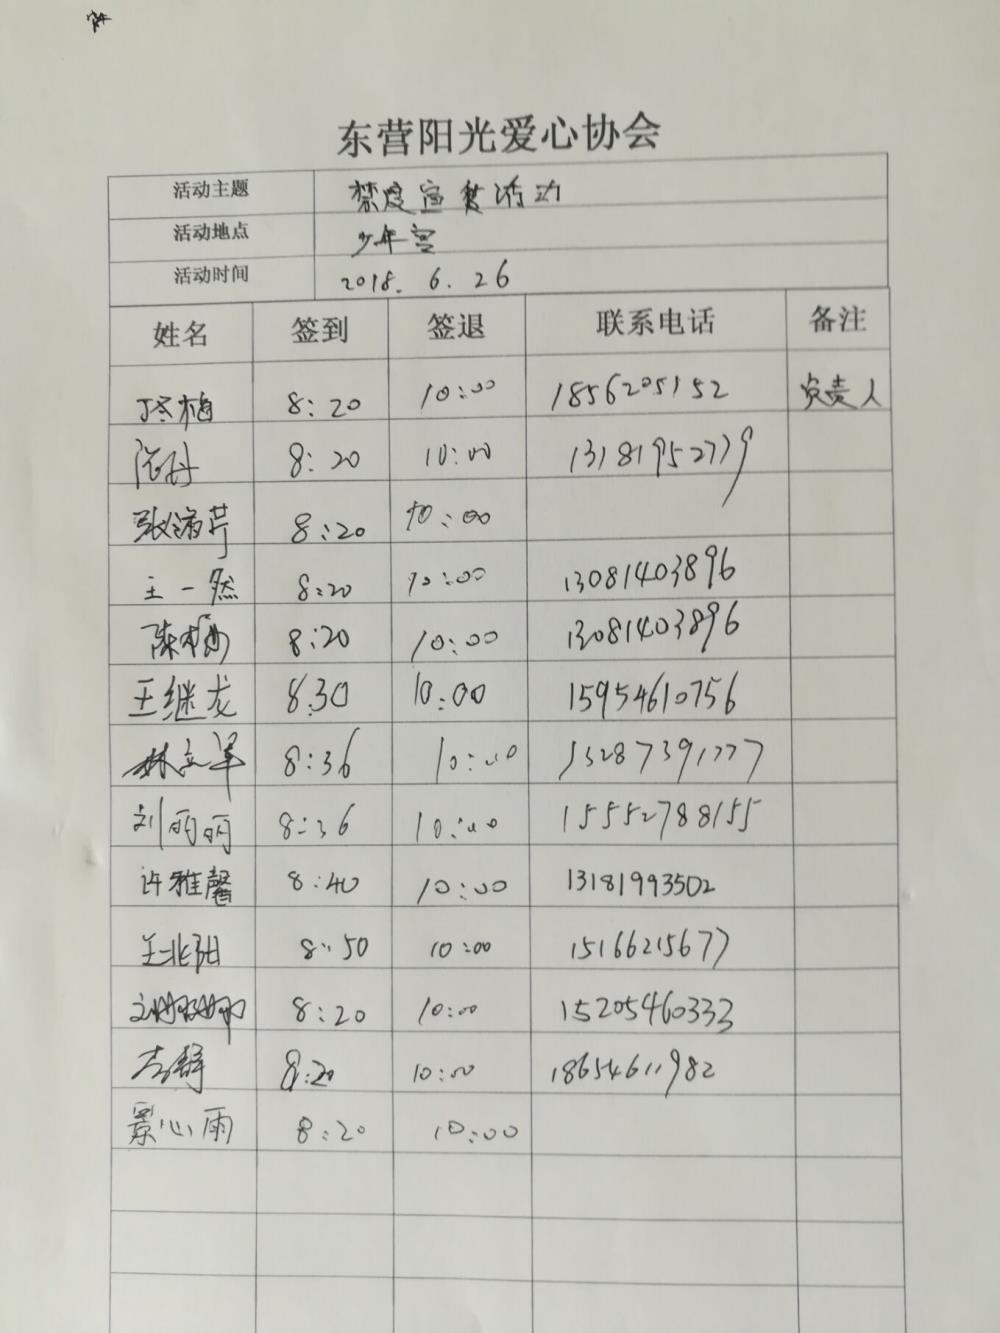 东营阳光爱心协会
活动主题 禁毒宣教活动
活动地点 少年宫
活动时间 2018. 6. 26
姓名 签到 签退 联系电话 备注
8:20 10:00 1856205152 负责人
8:20 10:00 13181952779
8:20 10:00
王一然 8:20 10:00 13081403896
陈梅 8:20 10:00 13081403896
王继龙 8:30 10:00 15954610756
林立军 8:36 10:00 13287391777
刘丽丽 8:36 10:00 15552788155
许雅馨 8:40 10:00 13181993502
王兆阳 8:50 10:00 15166215677
刘娜娜 8:20 10:00 15205460333
8:20 10:00 18654611982
景心雨 8:20 10:00